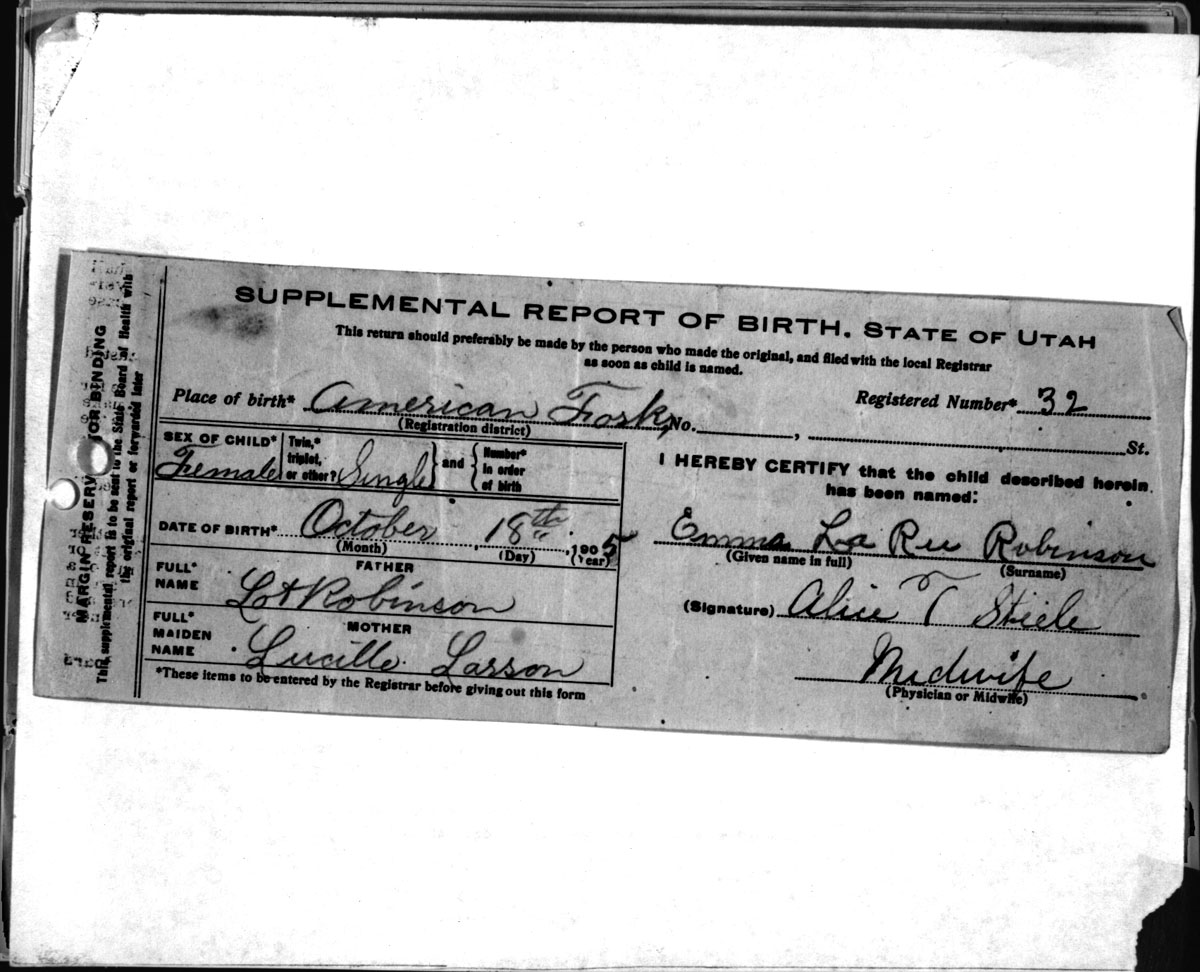 SUPPLEMENTAL REPORT OF BIRTH. STATE OF UTAH
This return should preferably be made by the person who made the original, and filed with the local Registrar
as soon as child is named.
Place of birth* American Fork, No. , St.
(Registration district)
Registered Number* 32
SEX OF CHILD* Female
Twin,* triplet, or other? Single
and Number* in order of birth
DATE OF BIRTH* October 18th, 1905
(Month) (Day) (Year)
FATHER
FULL* NAME Lot Robinson
MOTHER
FULL* MAIDEN NAME Lucille Larson
*These items to be entered by the Registrar before giving out this form
I HEREBY CERTIFY that the child described herein
has been named:
Emma La Rue Robinson
(Given name in full) (Surname)
(Signature) Alice T Stiele
Midwife
(Physician or Midwife)
MARGIN RESERV FOR BINDING
This supplemental report is to be sent to the State Board of Health with
the original report or forwarded later